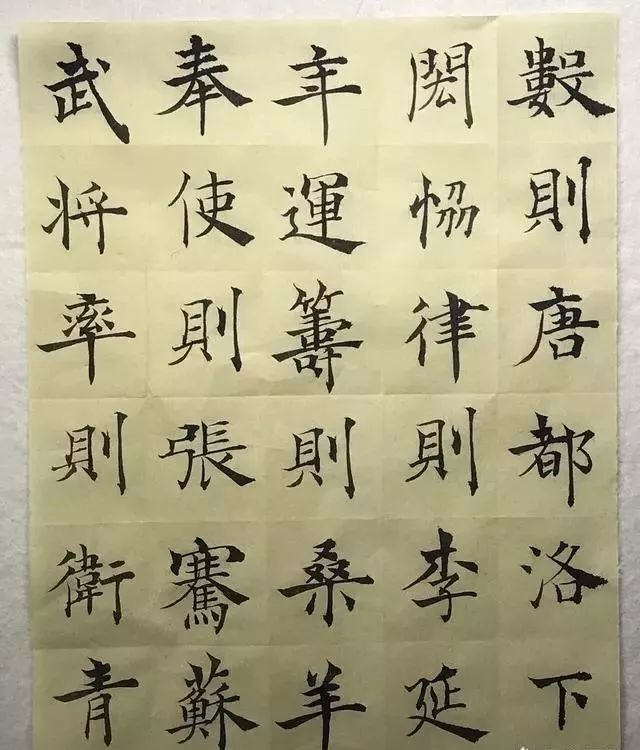 數則唐都洛下
閎恊律則李延
年運籌則桑羊
奉使則張騫蘇
武将率則衛青